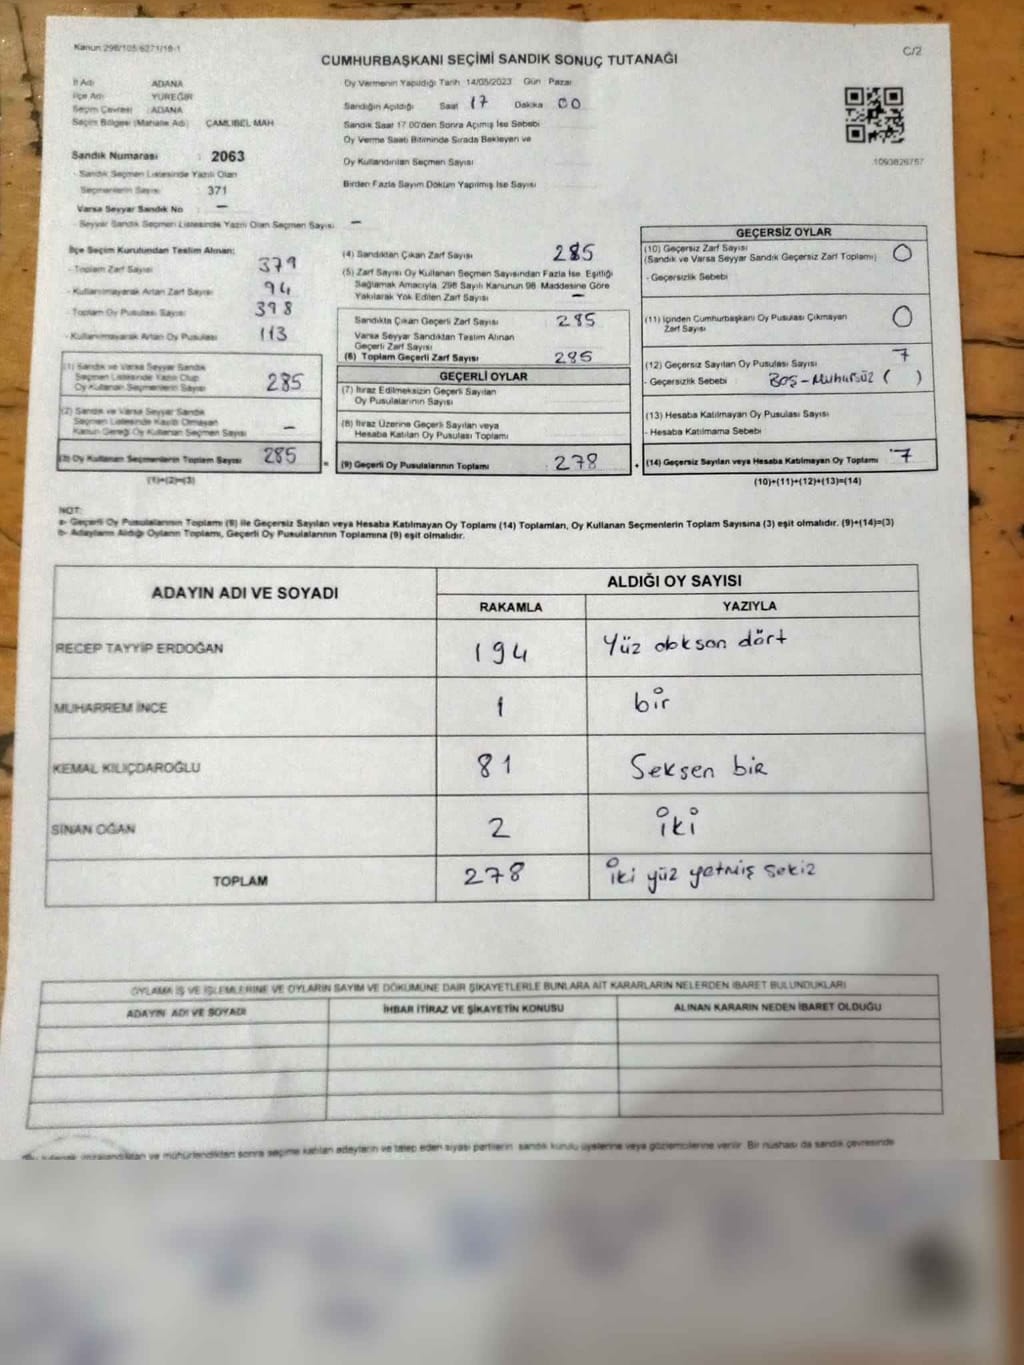 Kanun 298/105-6271/18-1
C/2
CUMHURBAŞKANI SEÇİMİ SANDIK SONUÇ TUTANAĞI
İl Adı ADANA
İlçe Adı YÜREĞİR
Seçim Çevresi : ADANA
Seçim Bölgesi (Mahalle Adı) ÇAMLIBEL MAH
Sandık Numarası : 2063
- Sandık Seçmen Listesinde Yazılı Olan
Seçmenlerin Sayısı : 371
Varsa Seyyar Sandık No : -
- Seyyar Sandık Seçmen Listesinde Yazılı Olan Seçmen Sayısı : -
Oy Vermenin Yapıldığı Tarih 14/05/2023 Gün Pazar
Sandığın Açıldığı Saat 17 Dakika 00
Sandık Saat 17.00'den Sonra Açılmış İse Sebebi
Oy Verme Saati Bitiminde Sırada Bekleyen ve
Oy Kullandırılan Seçmen Sayısı
Birden Fazla Sayım Döküm Yapılmış İse Sayısı
1093826757
İlçe Seçim Kurulundan Teslim Alınan:
- Toplam Zarf Sayısı 379
- Kullanılmayarak Artan Zarf Sayısı 94
Toplam Oy Pusulası Sayısı 398
- Kullanılmayarak Artan Oy Pusulası 113
(1) Sandık ve Varsa Seyyar Sandık
Seçmen Listesinde Yazılı Olup
Oy Kullanan Seçmenlerin Sayısı 285
(2) Sandık ve Varsa Seyyar Sandık
Seçmen Listesinde Kayıtlı Olmayan
Kanun Gereği Oy Kullanan Seçmen Sayısı -
(3) Oy Kullanan Seçmenlerin Toplam Sayısı 285
(1)+(2)=(3)
(4) Sandıktan Çıkan Zarf Sayısı 285
(5) Zarf Sayısı Oy Kullanan Seçmen Sayısından Fazla İse, Eşitliği
Sağlamak Amacıyla, 298 Sayılı Kanunun 98. Maddesine Göre
Yakılarak Yok Edilen Zarf Sayısı -
Sandıkta Çıkan Geçerli Zarf Sayısı 285
Varsa Seyyar Sandıktan Teslim Alınan
Geçerli Zarf Sayısı
(6) Toplam Geçerli Zarf Sayısı 285
GEÇERLİ OYLAR
(7) İtiraz Edilmeksizin Geçerli Sayılan
Oy Pusulalarının Sayısı
(8) İtiraz Üzerine Geçerli Sayılan veya
Hesaba Katılan Oy Pusulası Toplamı
= (9) Geçerli Oy Pusulalarının Toplamı 278
GEÇERSİZ OYLAR
(10) Geçersiz Zarf Sayısı
(Sandık ve Varsa Seyyar Sandık Geçersiz Zarf Toplamı) 0
- Geçersizlik Sebebi
(11) İçinden Cumhurbaşkanı Oy Pusulası Çıkmayan
Zarf Sayısı 0
(12) Geçersiz Sayılan Oy Pusulası Sayısı 7
- Geçersizlik Sebebi Boş-Mühürsüz ( )
(13) Hesaba Katılmayan Oy Pusulası Sayısı
- Hesaba Katılmama Sebebi
+ (14) Geçersiz Sayılan veya Hesaba Katılmayan Oy Toplamı 7
(10)+(11)+(12)+(13)=(14)
NOT:
a- Geçerli Oy Pusulalarının Toplamı (9) ile Geçersiz Sayılan veya Hesaba Katılmayan Oy Toplamı (14) Toplamları, Oy Kullanan Seçmenlerin Toplam Sayısına (3) eşit olmalıdır. (9)+(14)=(3)
b- Adayların Aldığı Oyların Toplamı, Geçerli Oy Pusulalarının Toplamına (9) eşit olmalıdır.
ADAYIN ADI VE SOYADI ALDIĞI OY SAYISI
RAKAMLA YAZIYLA
RECEP TAYYİP ERDOĞAN 194 Yüz doksan dört
MUHARREM İNCE 1 bir
KEMAL KILIÇDAROĞLU 81 Seksen bir
SİNAN OĞAN 2 iki
TOPLAM 278 iki yüz yetmiş sekiz
OYLAMA İŞ VE İŞLEMLERİNE VE OYLARIN SAYIM VE DÖKÜMÜNE DAİR ŞİKAYETLERLE BUNLARA AİT KARARLARIN NELERDEN İBARET BULUNDUKLARI
ADAYIN ADI VE SOYADI İHBAR İTİRAZ VE ŞİKAYETİN KONUSU ALINAN KARARIN NEDEN İBARET OLDUĞU
imzalandıktan ve mühürlendikten sonra seçime katılan adayların ve talep eden siyasi partilerin sandık kurulu üyelerine veya gözlemcilerine verilir. Bir nüshası da sandık çevresinde